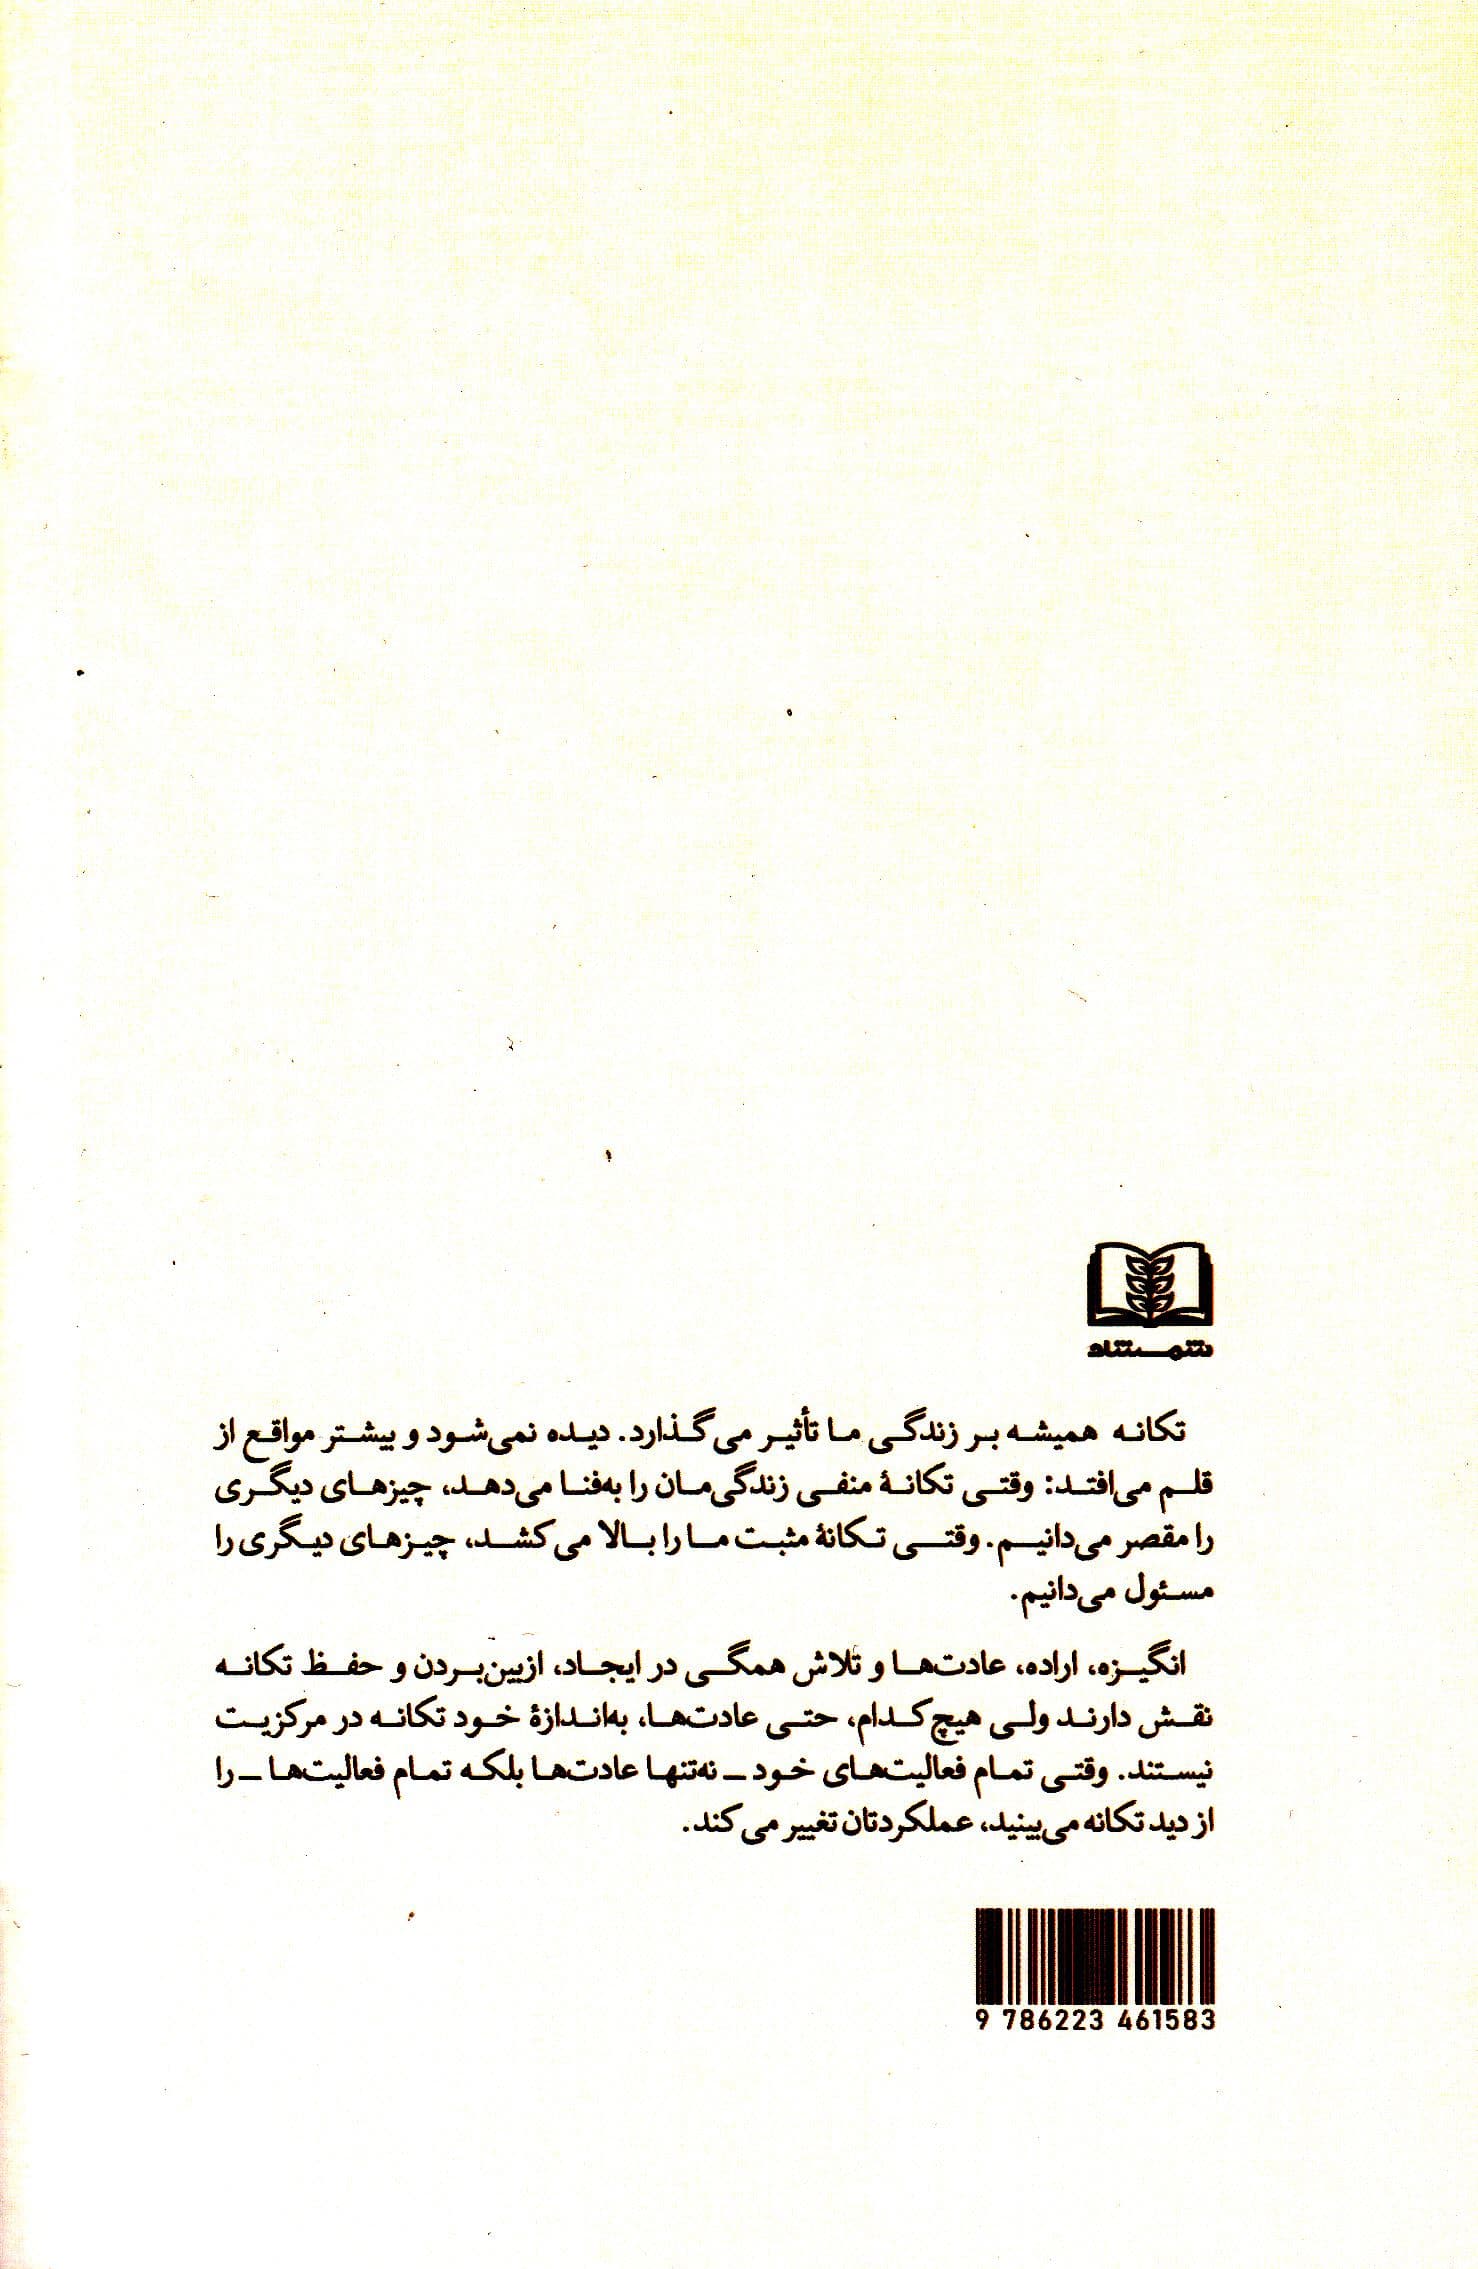 شمشاد
تکانه همیشه بر زندگی ما تأثیر می‌گذارد. دیده نمی‌شود و بیشتر مواقع از
قلم می‌افتد: وقتی تکانۀ منفی زندگی‌مان را به‌فنا می‌دهد، چیزهای دیگری
را مقصر می‌دانیم. وقتی تکانۀ مثبت ما را بالا می‌کشد، چیزهای دیگری را
مسئول می‌دانیم.
انگیزه، اراده، عادت‌ها و تلاش همگی در ایجاد، ازبین‌بردن و حفظ تکانه
نقش دارند ولی هیچ‌کدام، حتی عادت‌ها، به‌اندازۀ خود تکانه در مرکزیت
نیستند. وقتی تمام فعالیت‌های خود ـ نه‌تنها عادت‌ها بلکه تمام فعالیت‌ها ـ را
از دید تکانه می‌بینید، عملکردتان تغییر می‌کند.
9 786223 461583